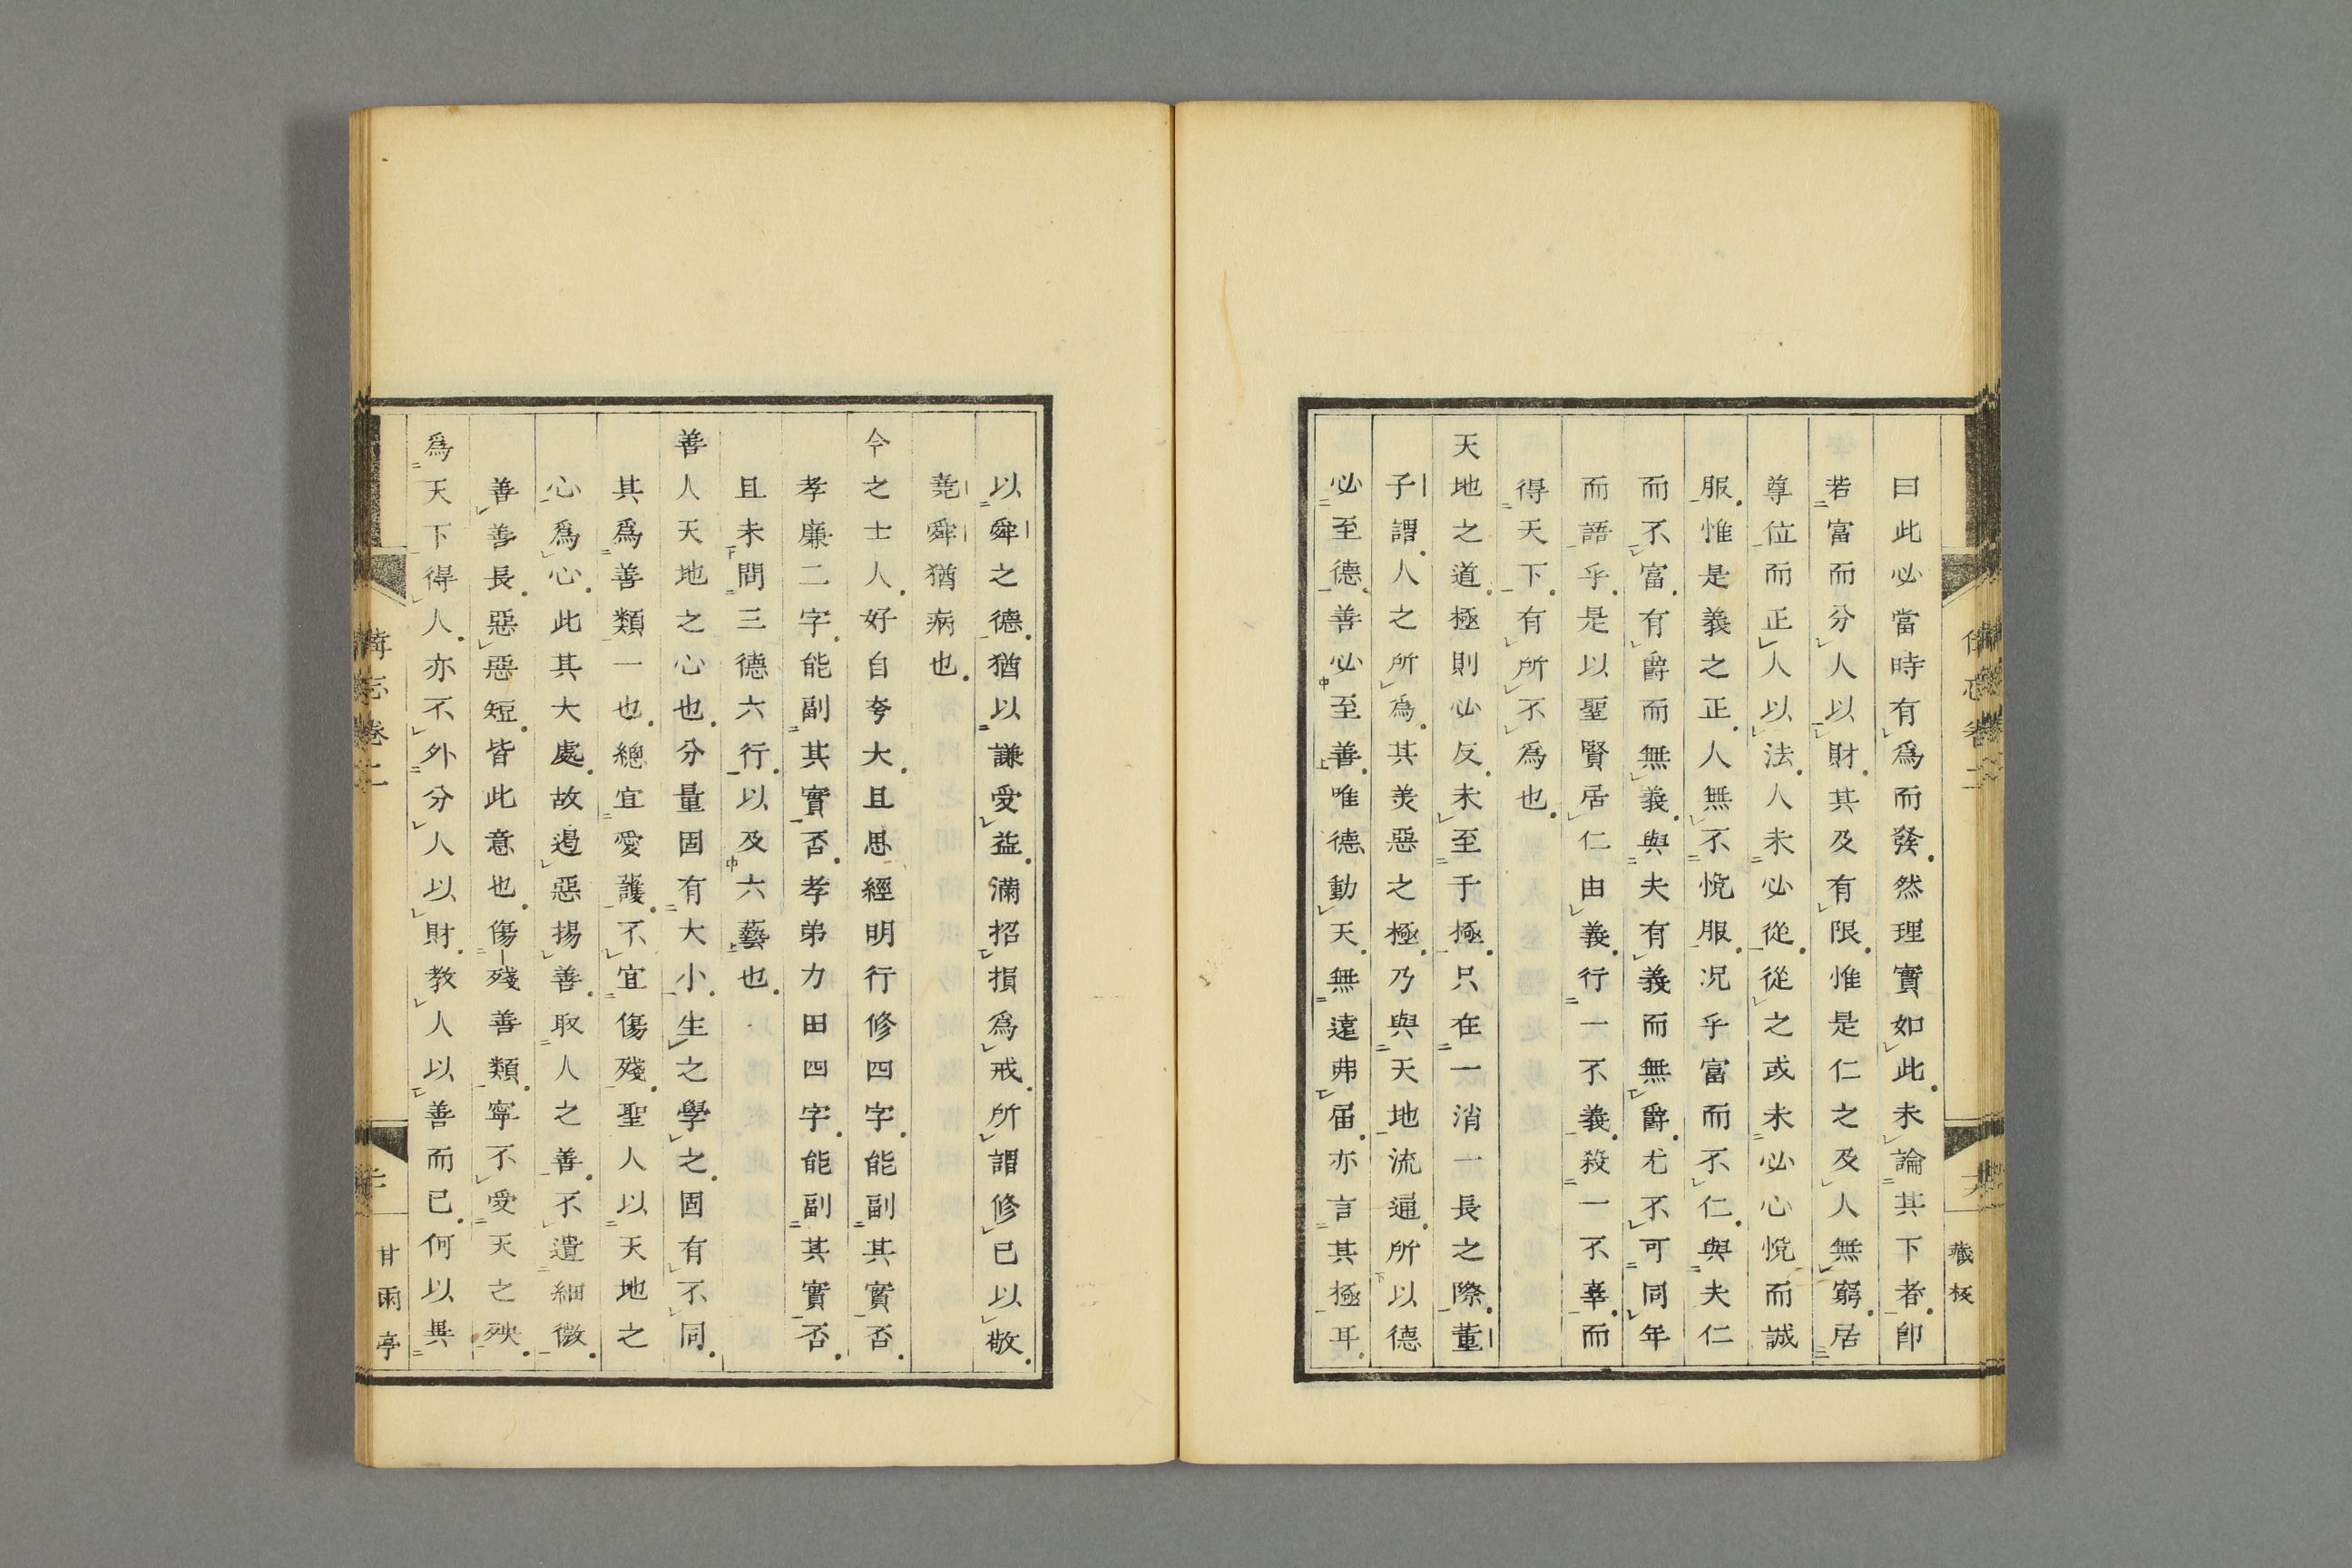 曰此必當時有爲而發然理實如此未論其下者卽
若富而分人以財其及有限惟是仁之及人無窮居
尊位而正人以法人未必從從之或未必心悅而誠
服惟是義之正人無不悅服况乎富而不仁與夫仁
而不富有爵而無義與夫有義而無爵尤不可同年
而語乎是以聖賢居仁由義行一不義殺一不辜而
得天下有所不爲也
天地之道極則必反未至于極只在一消一長之際董
子謂人之所爲其美惡之極乃與天地流通所以德
必至德善必至善唯德動天無遠弗届亦言其極耳
藏板
以舜之德猶以謙受益滿招損爲戒所謂修已以敬
堯舜猶病也
今之士人好自夸大且思經明行修四字能副其實否
孝廉二字能副其實否孝弟力田四字能副其實否
且未問三德六行以及六藝也
善人天地之心也分量固有大小生之學之固有不同
其爲善類一也總宜愛護不宜傷殘聖人以天地之
心爲心此其大處故遏惡揚善取人之善不遺細微
善善長惡惡短皆此意也傷殘善類寧不愛天之殃
爲天下得人亦不外分人以財教人以善而已何以異
志卷二
甘雨亭